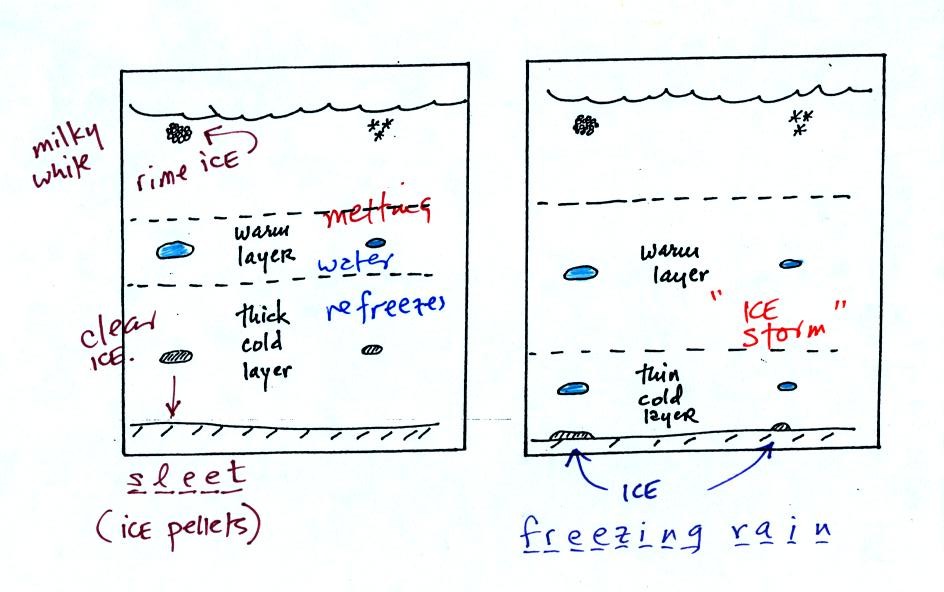 milky
white
rime ICE
melting
warm
layer
water
refreezes
thick
cold
layer
clear
ICE.
sleet
(ICE pellets)
warm
layer
" ICE
storm "
thin
cold
layer
ICE
freezing rain